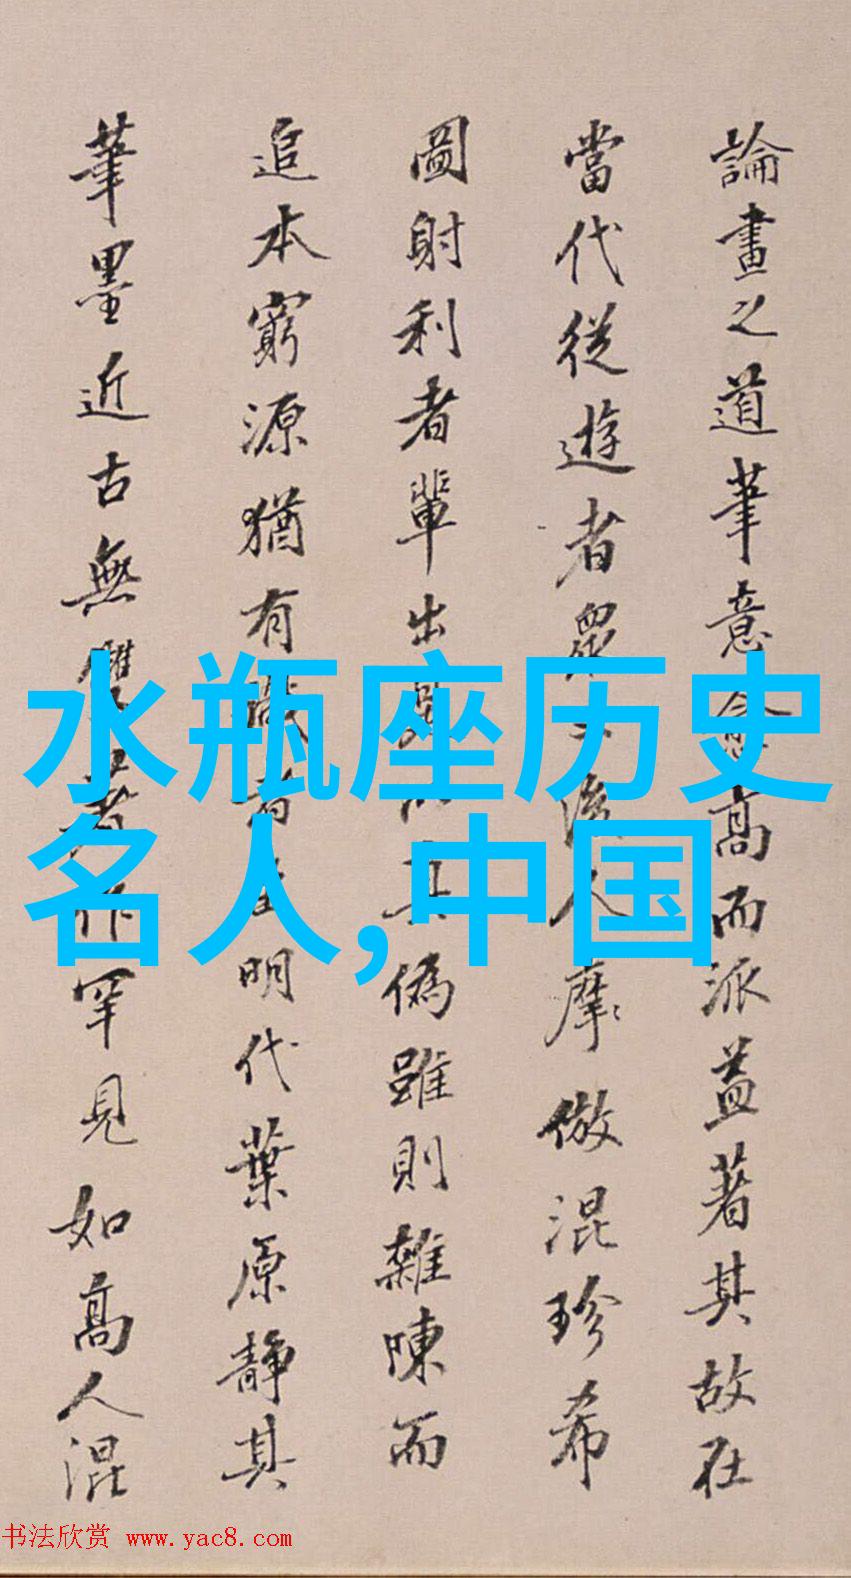 論畫之道筆意愈高而派益著其故在
當代從遊者眾支流人摩倣混珍希
圖射利者輩出是以真偽雖則雜陳而
追本窮源猶有識者在明代葉原靜其
筆墨近古無雙著作罕見如高人混
水瓶座历史
名人,中国
书法欣赏 www.yac8.com